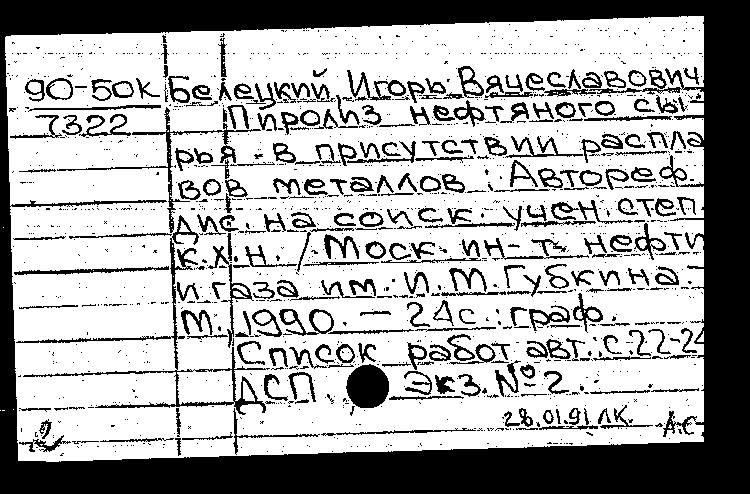 90-50к Белецкий, Игорь Вячеславович
7322 Пиролиз нефтяного сы-
рья в присутствии распла
вов металлов: Автореф.
дис. на соиск. учен. степ.
к.х.н. / Моск. ин-т нефти
и газа им. И.М.Губкина. -
М., 1990. - 24с.: граф.
Список работ авт.: с.22-24
ДСП. Экз. №2.
28.01.91 ЛК. А.С.
2